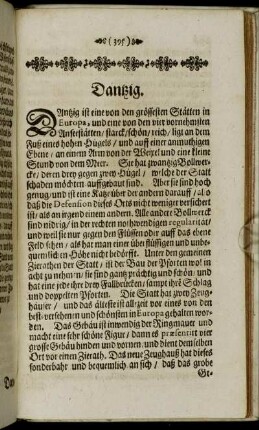 (395)
Dantzig.
DAntzig ist eine von den grössesten Stätten in
Europa, und eine von den vier vornehmsten
Anseestätten, starck, schön, reich, ligt an dem
Fuß eines hohen Hügels, und auff einer anmuthigen
Ebene, an einem Arm von der Weixel und eine kleine
Stund von dem Meer. Sie hat zwantzig Bollwer-
cke, deren drey gegen zwey Hügel, welche der Statt
schaden möchten auffgebaut sind. Aber sie sind hoch
genug, und ist eine Katze über der andern darauff, also
daß die Defension dieses Orts nicht weniger versichert
ist, als an irgend einem andern. Alle andere Bollwerck
sind nidrig, in der rechten nothwendigen regularität,
und weil sie nur gegen den Flüssen oder auff das ebene
Feld sehen, als hat man einer überflüssigen und unbe-
quemlichen Höhe nicht bedörfft. Unter den gemeinen
Zierathen der Statt, ist der Bau der Pforten wol in
acht zu nehmen, sie sind gantz prächtig und schön, und
hat eine jede ihre drey Fallbrücken, sampt ihre Schlag
und doppelten Pforten. Die Statt hat zwey Zeug-
häuser, und das älteste ist allzeit vor eines von den
best-versehenen und schönsten in Europa gehalten wor-
den. Das Gebäu ist inwendig der Ringmauer und
macht eine sehr schöne Figur, dann es præsentirt vier
grosse Gibäu hinden und vornen, und dient dem selben
Ort vor einen Zierath. Das neue Zeughauß hat dieses
sonderbahr und bequemlich an sich, daß das grobe
Ge-